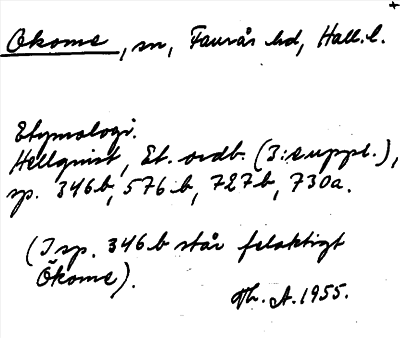 Okome, sn, Faurås hd, Hall. l.
Etymologi.
Hellquist, Et. ordb. (3: suppl.),
sp. 346 b, 576 b, 727 b, 730 a.
(I sp. 346 b står felaktigt
Ökome).
Th. A. 1955.